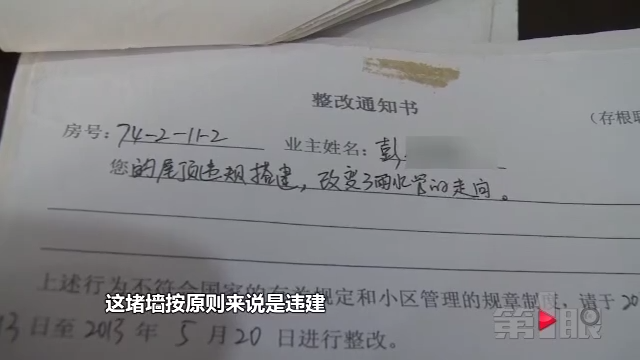 整改通知书
(存根联
房号：74-2-11-2 业主姓名：彭
您的屋顶违规搭建，改变了雨水管的走向。
上述行为不符合国家的有关规定和小区管理的规章制度，请于20
这堵墙按原则来说是违建
13日至2013年5月20日进行整改。
第1眼